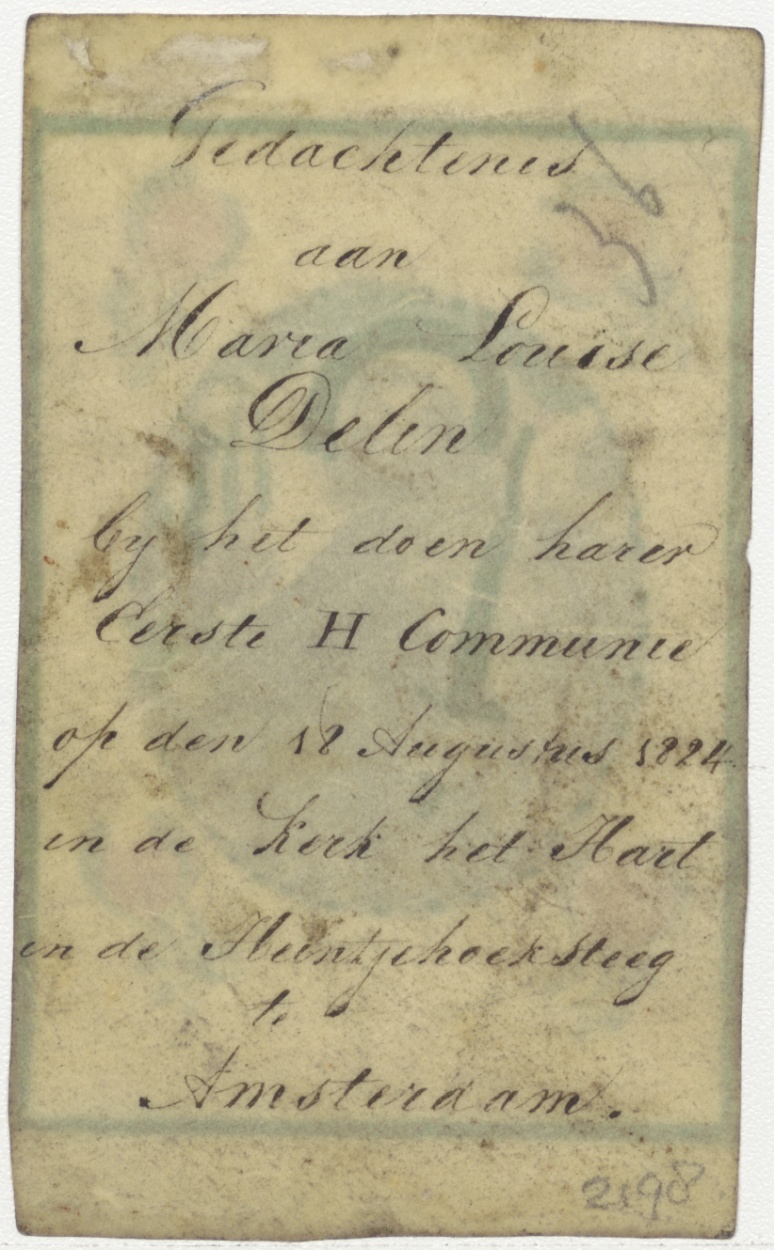 Gedachtenis
aan
Maria Louise
Delin
by het doen harer
Eerste H Communie
op den 18 Augustus 1824
in de Kerk het Hart
in de Heintjehoeksteeg
te
Amsterdam.
2198